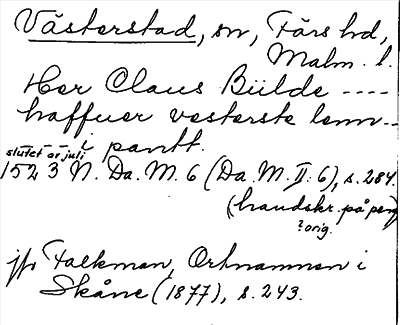 Västerstad, sn, Färs hd,
Malm. l.
Her Claus Biilde ----
haffuer vesterste lenn--
i pantt.
slutet av juli
1523 N. Da. M. 6 (Da. M. II 6), s. 284.
(handskr. på perg
? orig.
jfr Falkman, Ortnamnen i
Skåne (1877), s. 243.